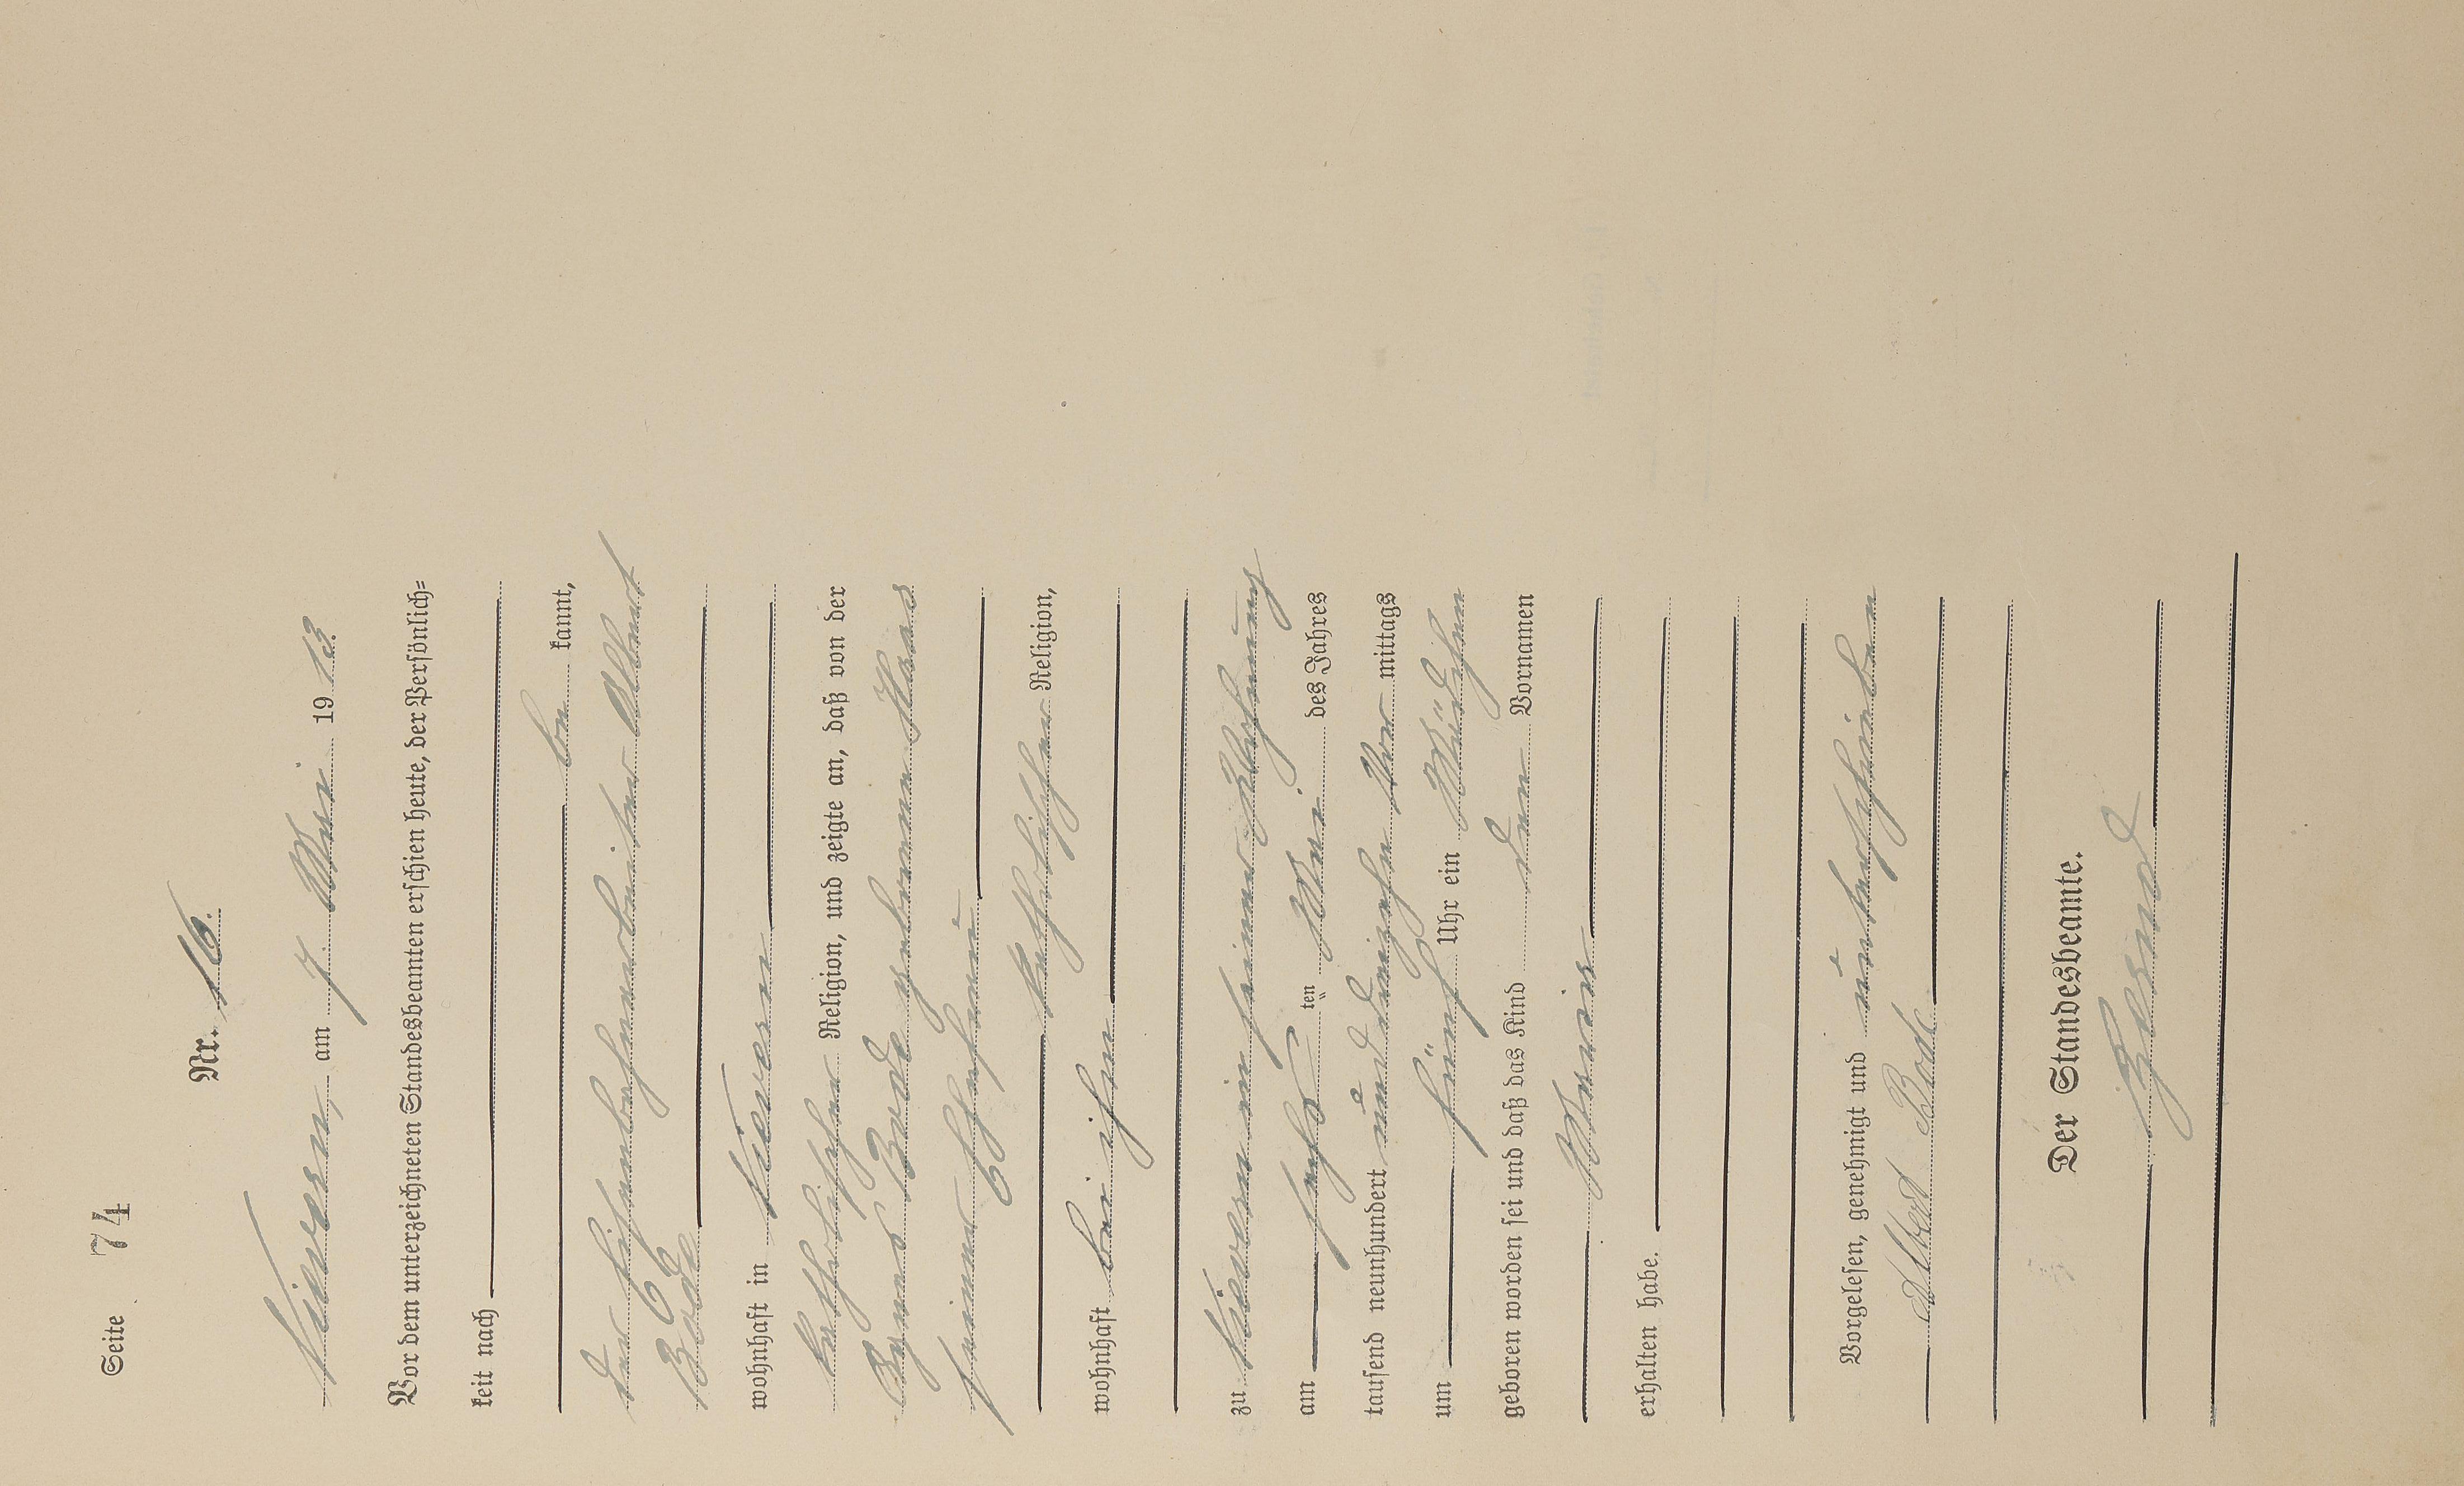 Seite 74
Nr. 16.
Nievern, am 7. Mai 1913.
Vor dem unterzeichneten Standesbeamten erschien heute, der Persönlich=
keit nach
be kannt,
der Eisenbahnarbeiter Albert
Bode
wohnhaft in Nievern
katholischer Religion, und zeigte an, daß von der
Agnes Bode geborene Haas
seiner Ehefrau
katholischer Religion,
wohnhaft bei ihm
zu Nievern in seiner Wohnung
am sechs ten Mai des Jahres
tausend neunhundert und dreizehn Vor mittags
um fünf Uhr ein Mädchen
geboren worden sei und daß das Kind den Vornamen
Maria
erhalten habe.
Vorgelesen, genehmigt und unterschrieben
Albert Bode
Der Standesbeamte.